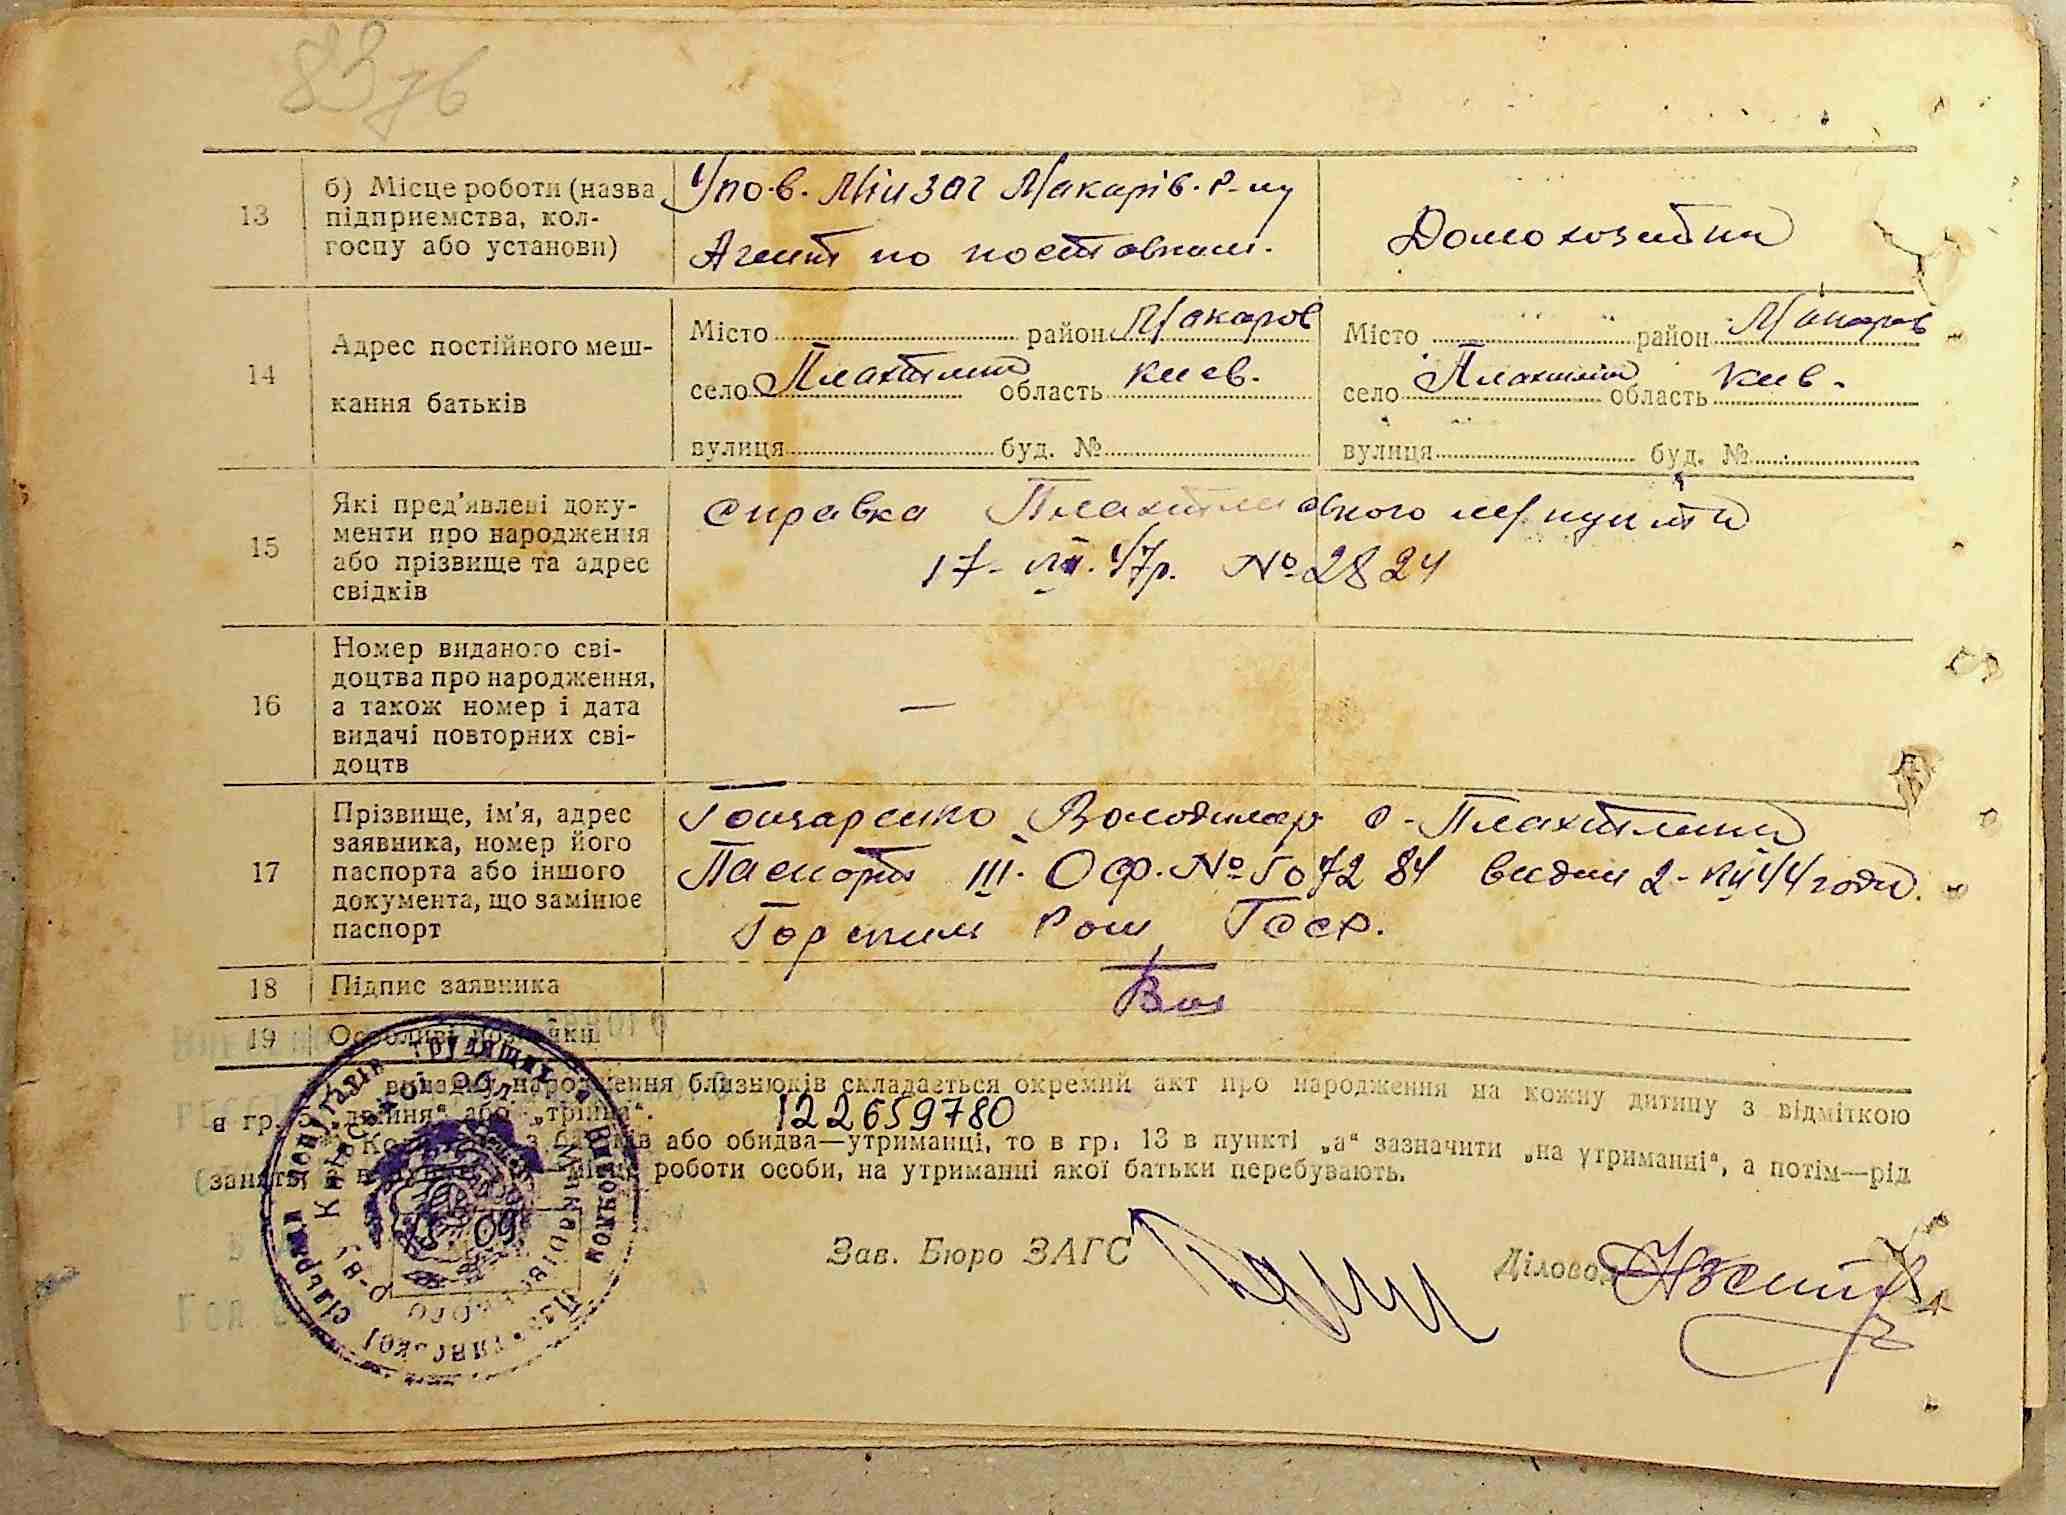 83 зв
13
б) Місце роботи (назва підприємства, колгоспу або установи)
Упо.в. Мінзаг Макарів. р-ну
Агент по поставкам.
Домохозяйка
14
Адрес постійного мешкання батьків
Місто район Макаров
село Плахтянка область Киев.
вулиця буд. №
Місто район Макаров
село Плахтянка область Киів.
вулиця буд. №
15
Які пред'явлені документи про народження або прізвище та адрес свідків
справка Плахтянського
17- VII. 47р. № 2824
16
Номер виданого свідоцтва про народження, а також номер і дата видачі повторних свідоцтв
—
17
Прізвище, ім'я, адрес заявника, номер його паспорта або іншого документа, що замінює паспорт
Гончаренко Володимир с-Плахтянка
Паспорт III. ОФ. № 507284 видан 2- 44 года
18
Підпис заявника
19
Особливі позначки
випадку народження близнюків складається окремий акт про народження на кожну дитину з відміткою
в гр. 5 „двійня“ або „трійня“.
122659780
з батьків або обидва—утриманці, то в гр. 13 в пункті „а“ зазначити „на утриманні“, а потім—рід
місце роботи особи, на утриманні якої батьки перебувають.
Зав. Бюро ЗАГС
Діловод
депутатів трудящих
Виконком
сільради
Київської обл.
Макарівського
р-ву